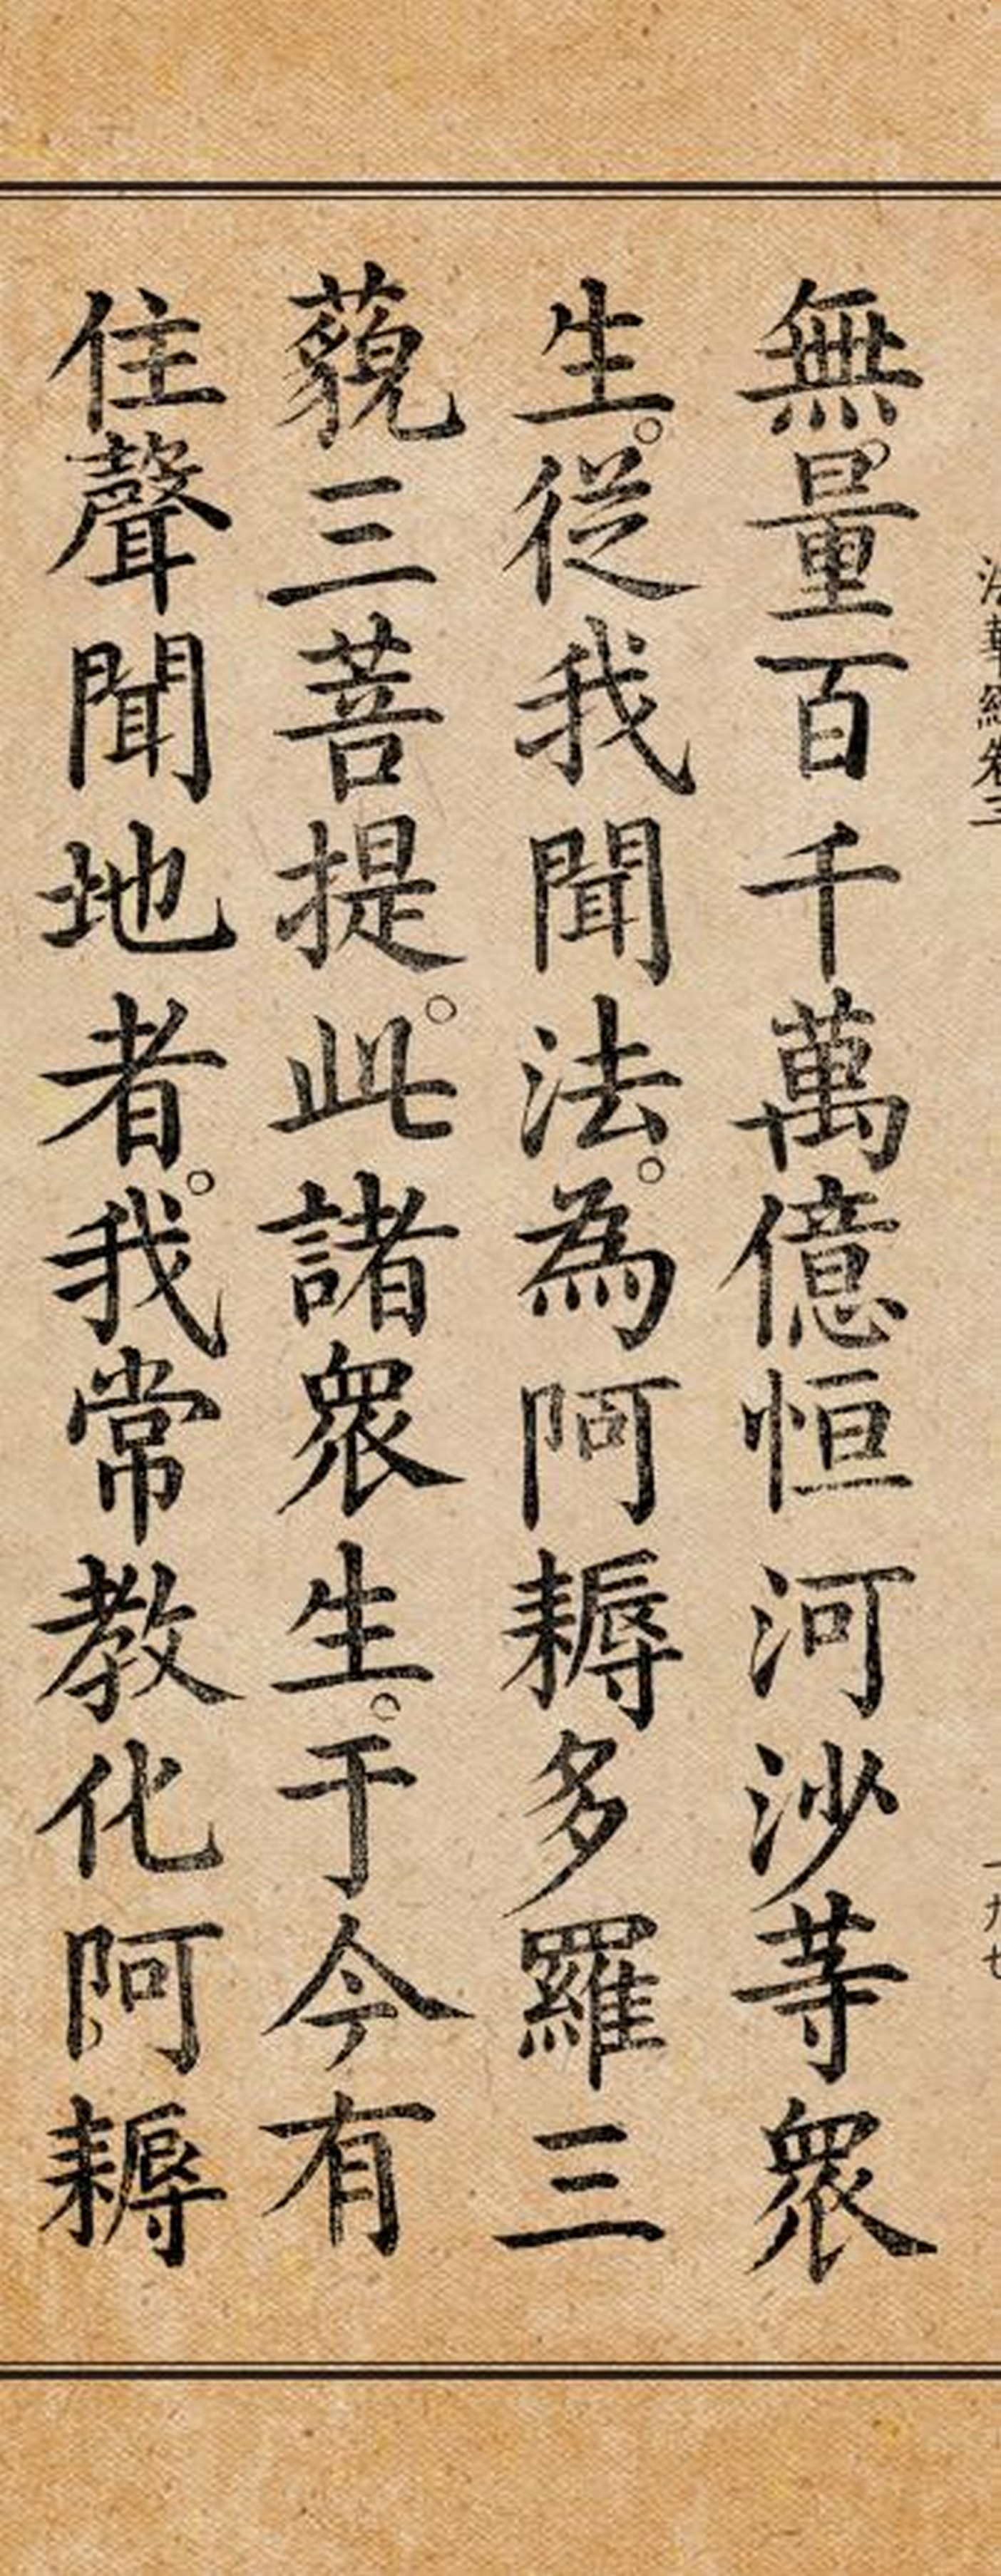 法華經卷三 一九七
無量百千萬億恒河沙等眾
生。從我聞法。為阿耨多羅三
藐三菩提。此諸眾生。于今有
住聲聞地者。我常教化阿耨